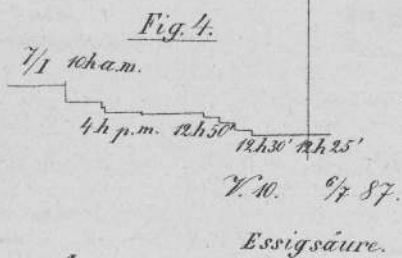 Fig. 4.
7/I 10h a.m.
4 h p.m. 12h50'
12h30' 12h25'
V. 10. 6/7 87.
Essigsäure.